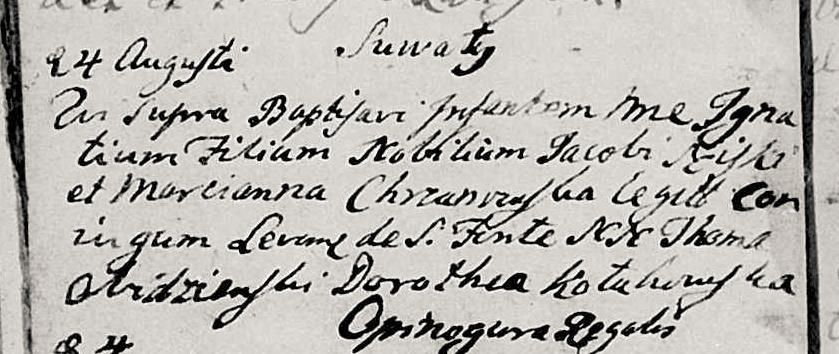 24 Augusti Suwaty
Ut Supra Baptisavi Infantem Nne Igna
tium Filium Nobilium Jacobi
et Marcianna Chrzanowska legitt Con
iugum Levante de S. Fonte NN Thoma
Dorothea
Opinogura Regalis
24